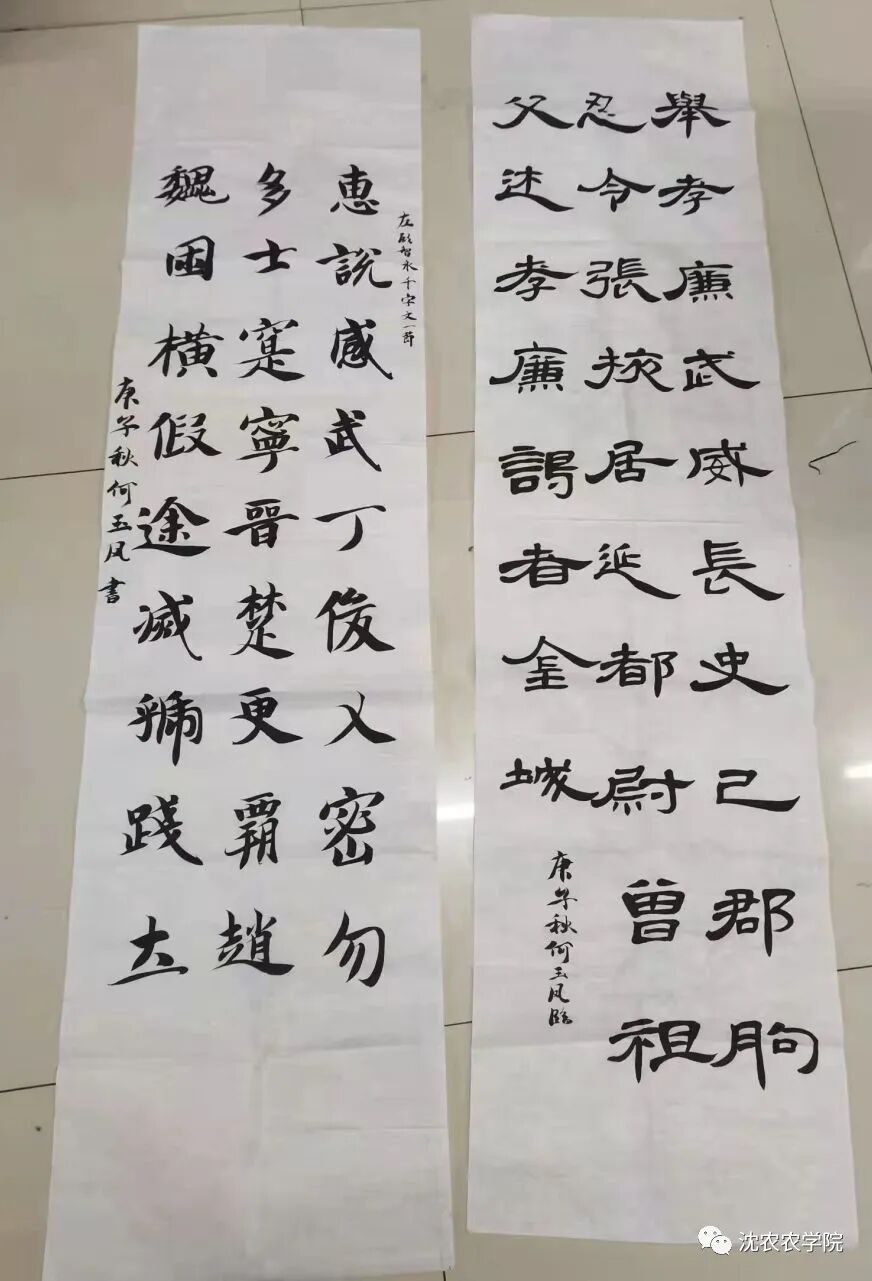 舉孝廉武威長史己郡朐
忍令張掖居延都尉曾祖
父述孝廉謁者金城
庚子秋何玉凤臨
左智永千字文一節
恵說感武丁俊乂密勿
多士寔寧晉楚更覇趙
魏困横假途滅虢踐土
庚子秋何玉凤書
沈农农学院